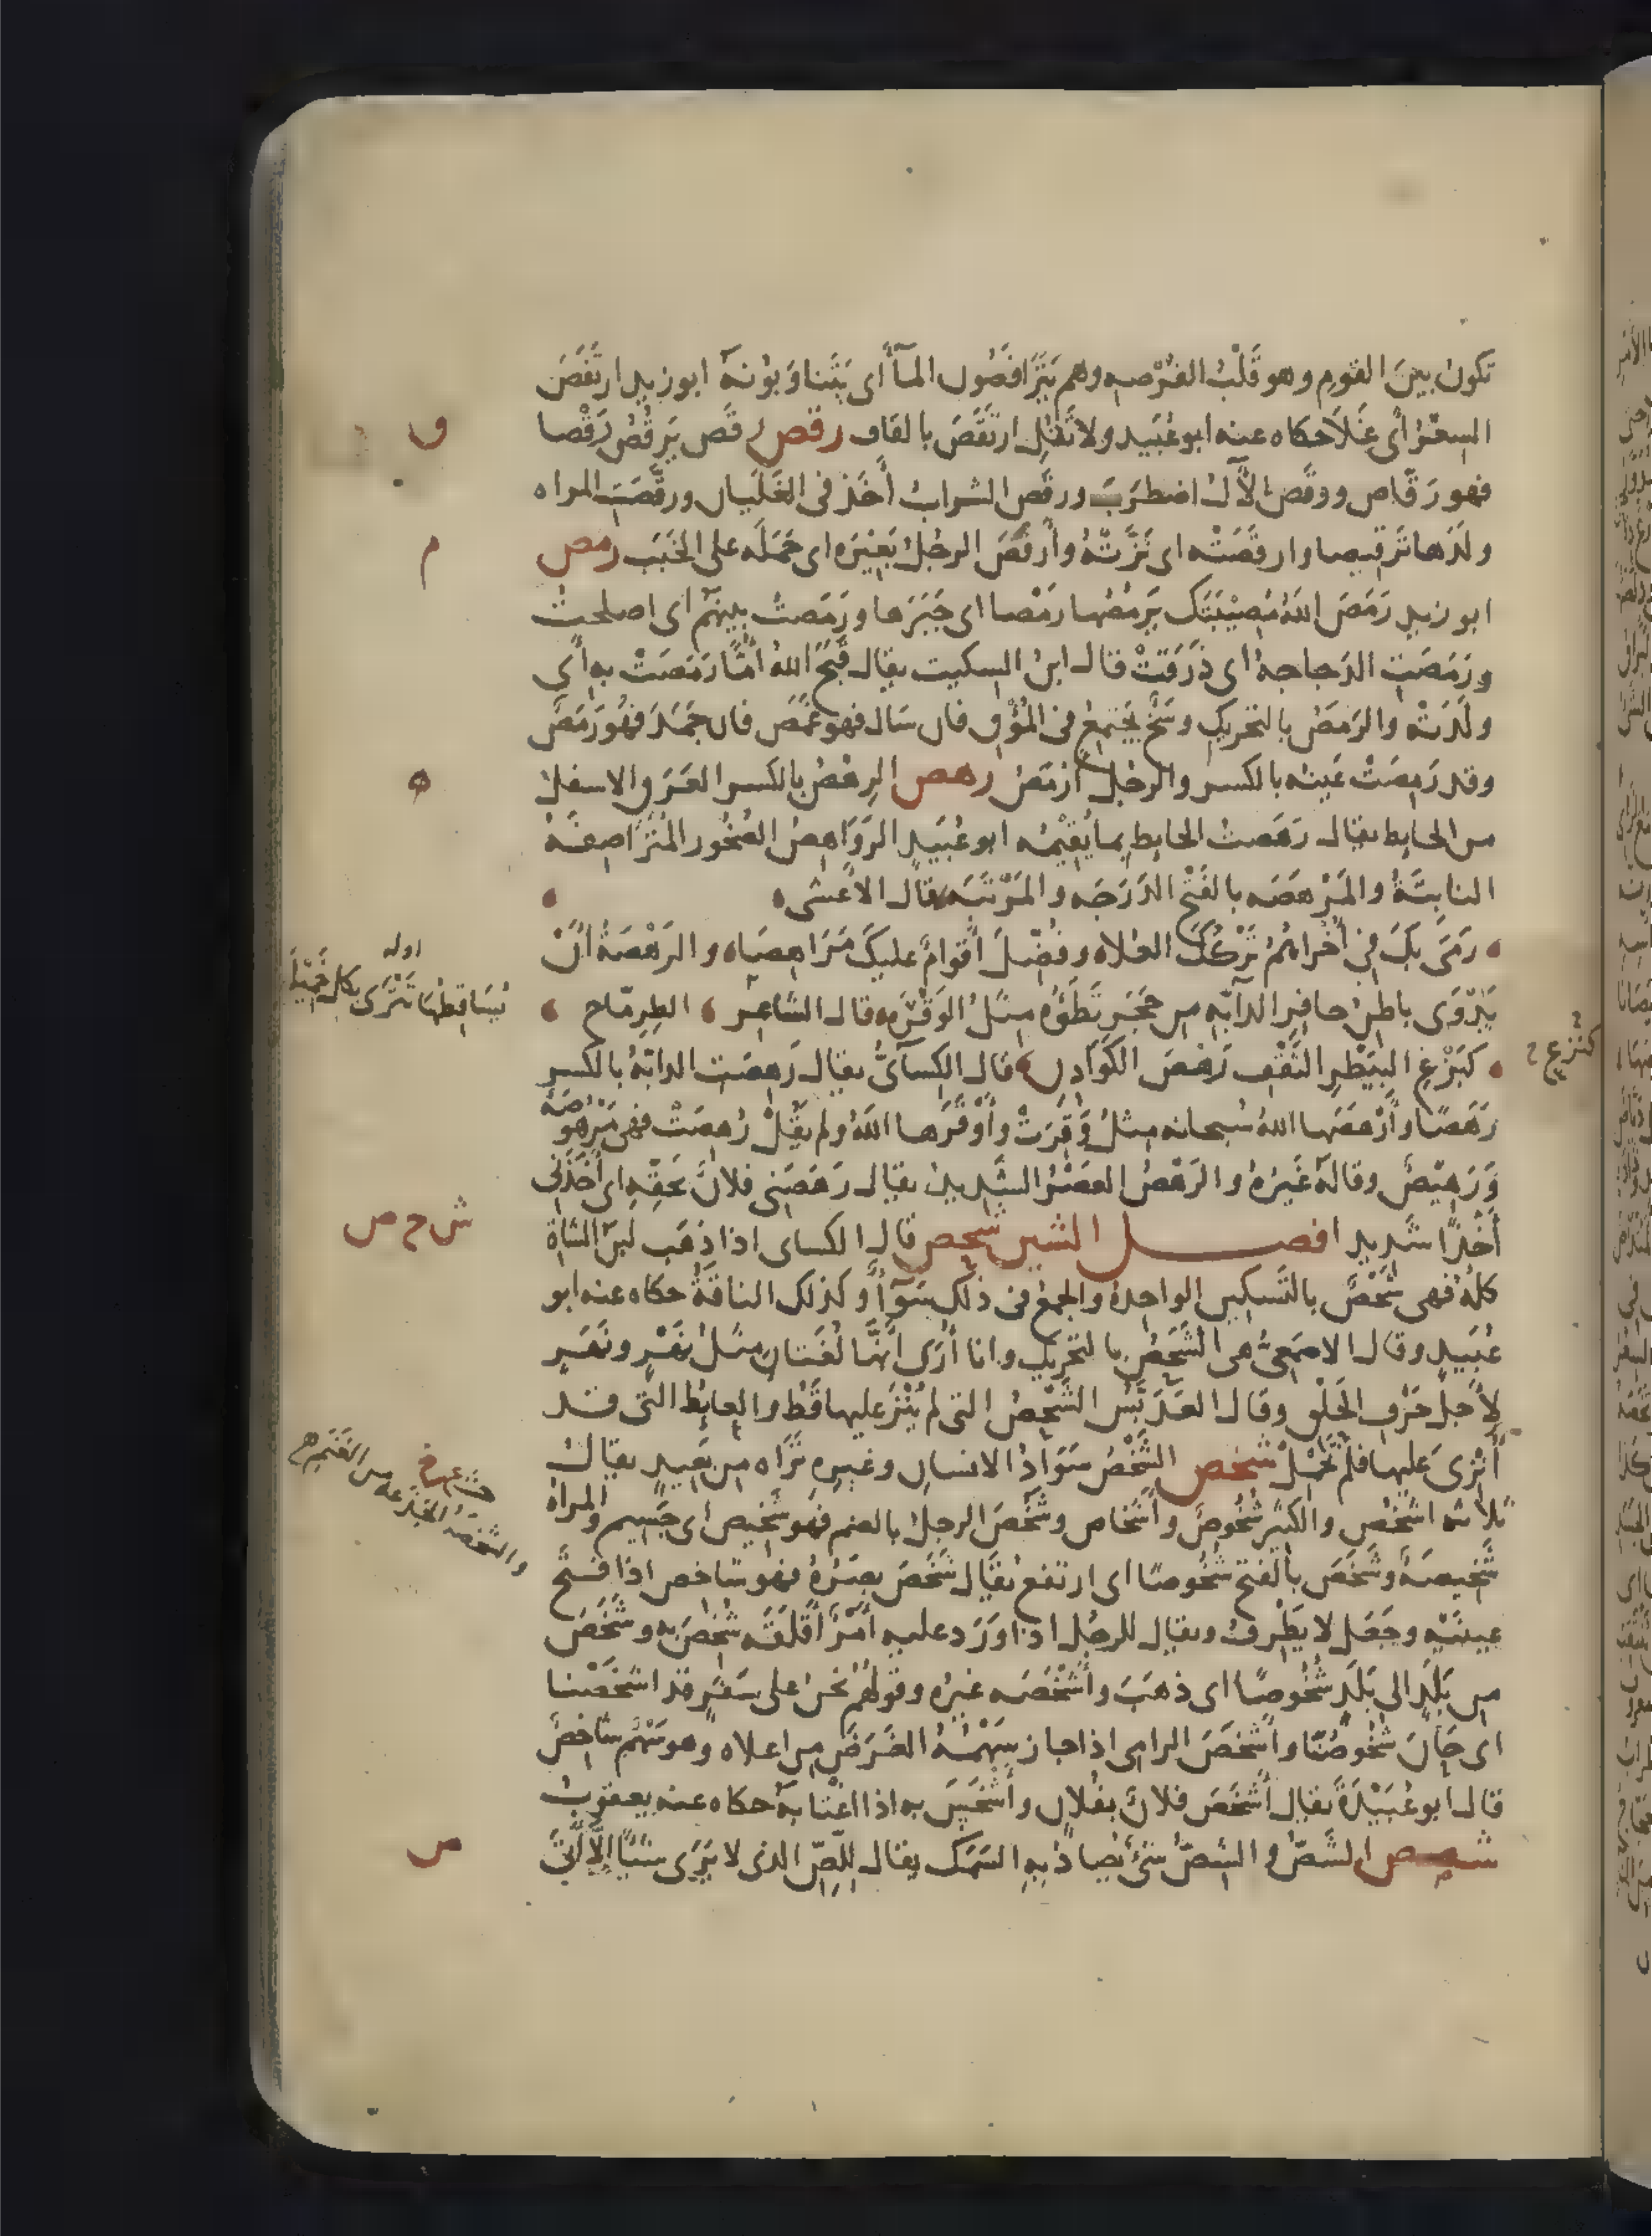 تكون بين القوم وهو قَلْبُ الفُرْصه وهم يَتَرافَصُون المآأَ أى يَتَناوَبُونهُ ابوزيد ارتَفَصَ
السِعْرُ اى غَلاَ حكاه عنه ابوعُبَيد ولا تَقُل ارتَقَصَ بالقاف رقص رقَص يَرقُصُ رَقْصا
فهو رَقّاص ورقَص الآلُ اضطَرَبَ ورقَص الشرابُ أَخَذ فى الغَلَيان ورقَّصَتِ المراه
ولَدَها تَرقيصا وارقَصَتْه اى نَزَّتْهُ وأَرقَصَ الرجُلُ بَعِيْرَه اى حَمَلَه على الخَبَب رمص
ابو زيد رَمَصَ اللهُ مُصِيْبَتَك يَرمُصُها رَمْصا اى جَبَرَها ورَمَصتُ بينهُم اى اصلحتُ
ورَمَصَتِ الدَجاجهُ اى ذَرَقَتْ قال ابنُ السكيت يقال قَبَحَ اللهُ أُمًّا رَمَصَتْ به أى
ولَدَتْه والرَمَصُ بالتحريك وسَخٌ يجتَمِعُ فى المُؤْق فان سَال فهو غَمَص فان جَمَدَ فهُو رَمَصٌ
وقد رَمِصَتْ عَينه بالكسر والرجُل أَرْمَصُ رهص الرِهْصُ بالكسر العَرَق الاسفل
من الحايط يقال رَهَصتُ الحايط بما يُقِيْمُه ابوعُبَيد الرَوَاهِصُ الصُخُور المُتَرَاصِفَةُ
الثابِتَةُ والمَرْهَصَه بالفَتْح الدَرَجَه والمَرْتَبَه قال الاَعشى
رَمَى بكَ فى أُخْراهُمُ تَرْكُكَ العُلاه وفُضِّلَ أَقوامٌ عليكَ مَرَاهِصَاه والرَهْصَةُ أَنْ
يَذْوَى باطِنُ حافِرِ الدآبّه من حَجَر تَطَؤُه مِثلُ الوَقْرَه قال الشاعر الطِرِمّاح
اوله
يُسَاقِطُها تَتْرَى بكل خَمِيْلَ
كبَزْغِ البِيَطْرِ الثَقْفِ رَهْصَ الكَوَادِن قال الكِسآىُّ يقال رَهِصَتِ الدابّهُ بالكسر
رَهَصًا وأَرْهَصَها اللهُ سُبحانه مِثلُ وَقِرَتْ وأَوْقَرَها اللهُ ولم يَقُلْ رُهِصَتْ فهى مَرْهُوصَةٌ
وَرَهِيْصٌ وقالهُ غَيرُهُ والرَهْصُ العَصْرُ الشَديد يقال رَهَصَنى فلانٌ بحَقِّه اى أَخَذَنى
أَخْذًا شَديدا فصل الشين شحص قال الكساى اذا ذهَب لبَنُ الشاةِ
ش ح ص
كلُّهُ فهى شَحْصٌ بالتَسكين الواحدةُ والجمعُ فى ذلكَ سَوَآأٌ وكذلك الناقَةُ حكاه عنه ابو
عُبَيد وقال الاصمَعىُّ هى الشَحَصُ بالتحريك وانا أَرَى أنَّهُما لُغَتان مثلُ نَهْر ونَهَر
لأَجلِ حَرْف الحَلْق وقال العَدَبَّسُ الشَحْصُ التى لم يُنْزَ عليها قَطُّ والعايِطُ التى قد
أُنْزِىَ عليها فلم تَحْمِلْ شخص الشَخْصُ سَوَادُ الانسان وغيرِه تَرَاه من بَعِيد يقال
ثلاثه اشخُص والكثير شُخُوصٌ وأَشخاص وشَخُصَ الرجلُ بالضم فهو شَخِيص اى جَسِيم والمراة
شَخِيصَةٌ وشَخَصَ بالفتح شُخُوصًا اى ارتفع يقال شَخَصَ بصَرُهُ فهو شاخص اذا فَتَح
عينَيْه وجَعَل لا يَطْرِفُ ويقال للرجُل اذا وَرَد عليه أَمْرٌ أَقلَقَه شُخِصَ به وشَخَصَ
من بَلَدٍ الى بَلَدٍ شُخُوصًا اى ذهَبَ وأَشْخَصَه غيرُه وقولُهُم نحن على سَفَرٍ قد اشخَصْنا
اى حَانَ شُخُوصُنا وأَشخَصَ الرامى اذا جاز سَهْمُهُ الغَرَضَ من اعلاه وهو سَهْمٌ شاخِصٌ
قال ابوعُبَيْدَةَ يقال أَشخَصَ فلانٌ بفُلان وأَشْخَسَ به اذا اغْتَابهُ حكاه عنه يعقوبُ
شصص الشَصُّ والشِصُّ شىٌ يُصادُ بهِ السَمَك يقال للّصِّ الذى لا يَرَى شَيًا إِلَّا أَتَى